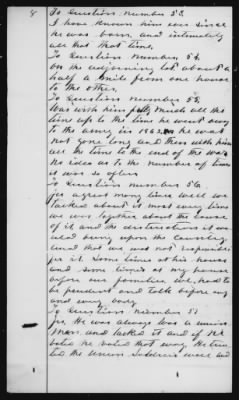 8 To Question number 53
I have known him ever since
he was born and intimately
all that time.
To Question number 54
On the adjoining lot about a
half a mile from one house
to the other.
To Question number 55
Was with him much all the
time up to the time he went away
to the army in 1862 he was
not gone long and then with him
all the time to the end of the war
No idea as to the number of times
it was so often
To Question number 56
yes a great many times well we
talked about it most every time
we was together about the cause
of it and the distruction it was
upon the country
and that we was not responsible
for it some times at his house
and some times at my house
before our families we had to
be prudent and talk before any
and every body
To Question number 57
yes He was always was a union
man and talked it and if He
voted he voted that way He
the union Soldiers well and